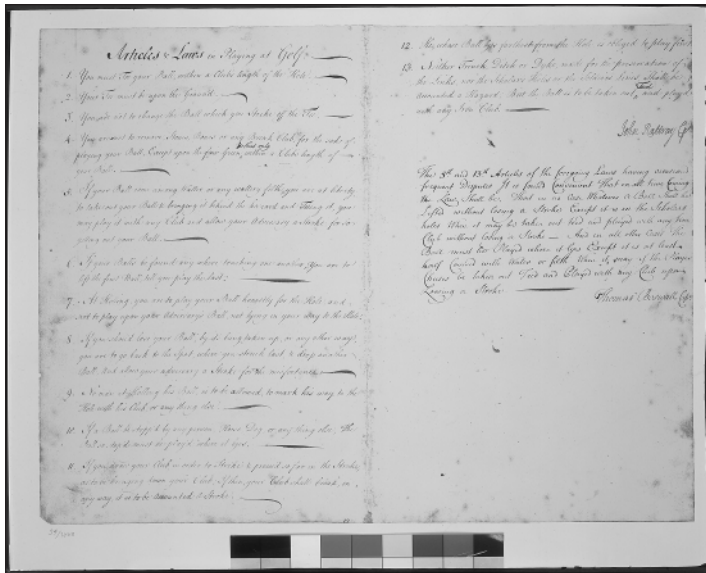 Articles & Laws in Playing at Golf.
1. You must Tee your Ball, within a Clubs length of the Hole.
2. Your Tee must be upon the Ground.
3. You are not to change the Ball which you Stroke off the Tee.
4. You are not to remove Stones, Bones or any Break Club, for the sake of
playing your Ball, Except upon the fair Green, within a Clubs length of
your Ball.
5. If your Ball come among Water or any watery filth, you are at liberty
to take out your Ball & bringing it behind the hazard and Teeing it, you
may play it with any Club and allow your Adversary a Stroke for so
getting out your Ball.
6. If your Balls be found any where touching one another, You are to
lift the first Ball, till you play the last.
7. At Holling, you are to play your Ball honestly for the Hole, and
not to play upon your Adversary's Ball, not lying in your way to the Hole.
8. If you should lose your Ball, by its being taken up, or any other way,
you are to go back to the Spot, where you struck last, & drop another
Ball, And allow your adversary a Stroke for the misfortune.
9. No man at Holling his Ball, is to be allowed, to mark his way to the
Hole with his Club or any thing else.
10. If a Ball be stopp'd by any person, Horse, Dog or any thing else, The
Ball so stop'd must be play'd where it lyes.
11. If you draw your Club in order to Stroke & proceed so far in the Stroke,
as to be bringing down your Club; If then, your Club shall break, in
any way, it is to be accounted a Stroke.
12. He, whose Ball lyes furthest from the Hole is obliged to play first.
13. Neither Trench, Ditch or Dyke, made for the preservation of
the Links, nor the Scholars Holes or the Soldiers Lines, Shall be
accounted a Hazard; But the Ball is to be taken out, Teed, and play'd
with any Iron Club.
John Rattray Capt
The 5th and 13th Articles of the foregoing Laws having occasioned
frequent Disputes It is found Convenient That in all time Coming
the Law Shall be, That in no Case Whatever a Ball Shall be
Lifted without losing a Stroke Except it is in the Scholars
holes When it may be taken out teed and played with any Iron
Club without losing a Stroke — And in all other Cases The
Ball must be Played where it lyes Except it is at least
half Covered with Water or filth When it may if the Player
Chuses be taken out Teed and Played with any Club upon
Loosing a Stroke
Thomas Boswall Capt